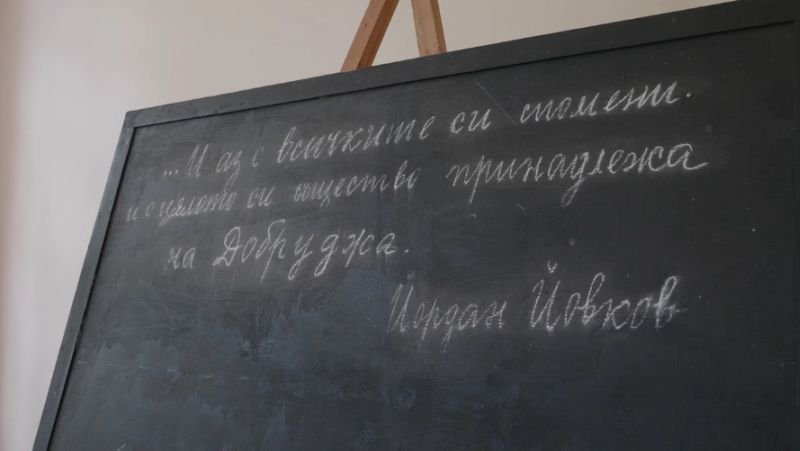 ...И аз с всичките си спомени
и с цялото си същество принадлежа
на Добруджа.
Йордан Йовков